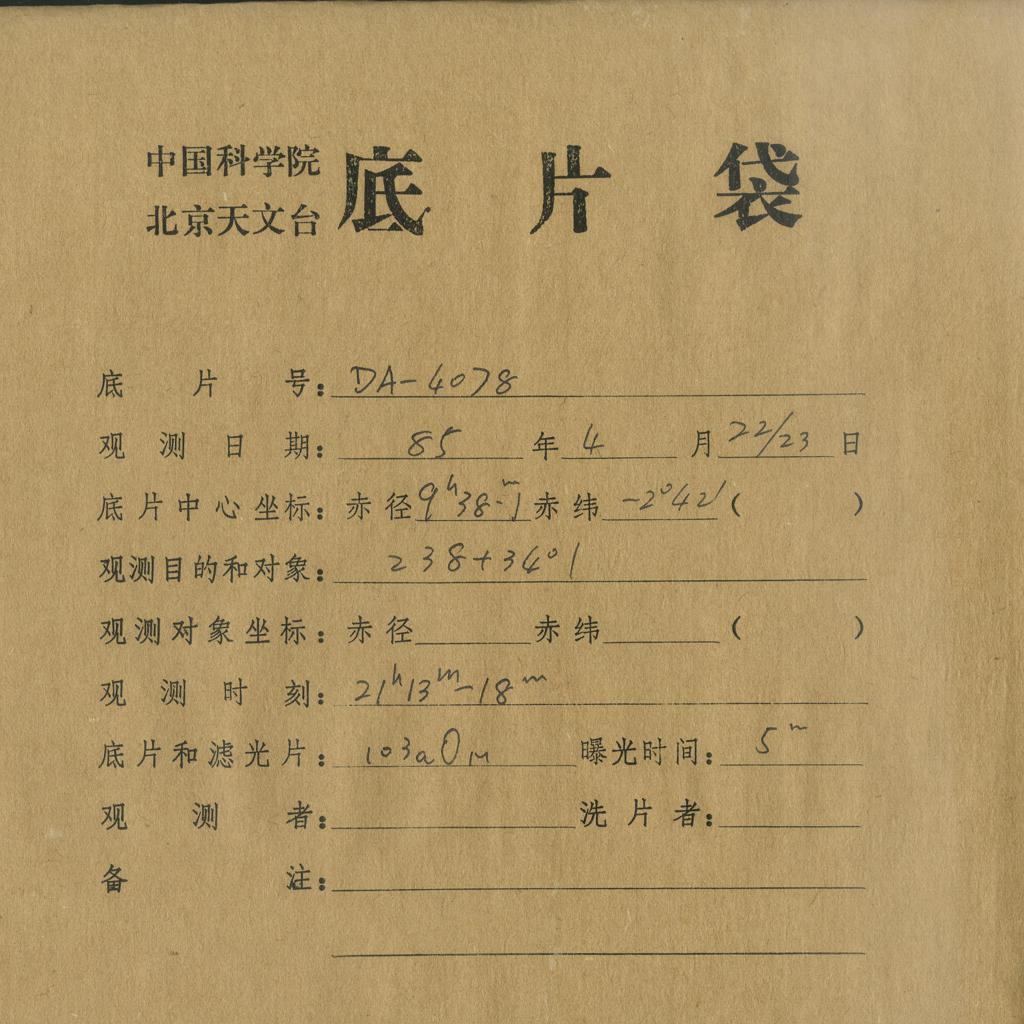 中国科学院
北京天文台
底片袋
底片号：DA-4078
观测日期：85年4月22/23日
底片中心坐标：赤径9ʰ38ᵐ.1赤纬-2°42′（ ）
观测目的和对象：238+34°1
观测对象坐标：赤径 赤纬 （ ）
观测时刻：21ʰ13ᵐ-18ᵐ
底片和滤光片：103aO 曝光时间：5ᵐ
观测者： 洗片者：
备注：